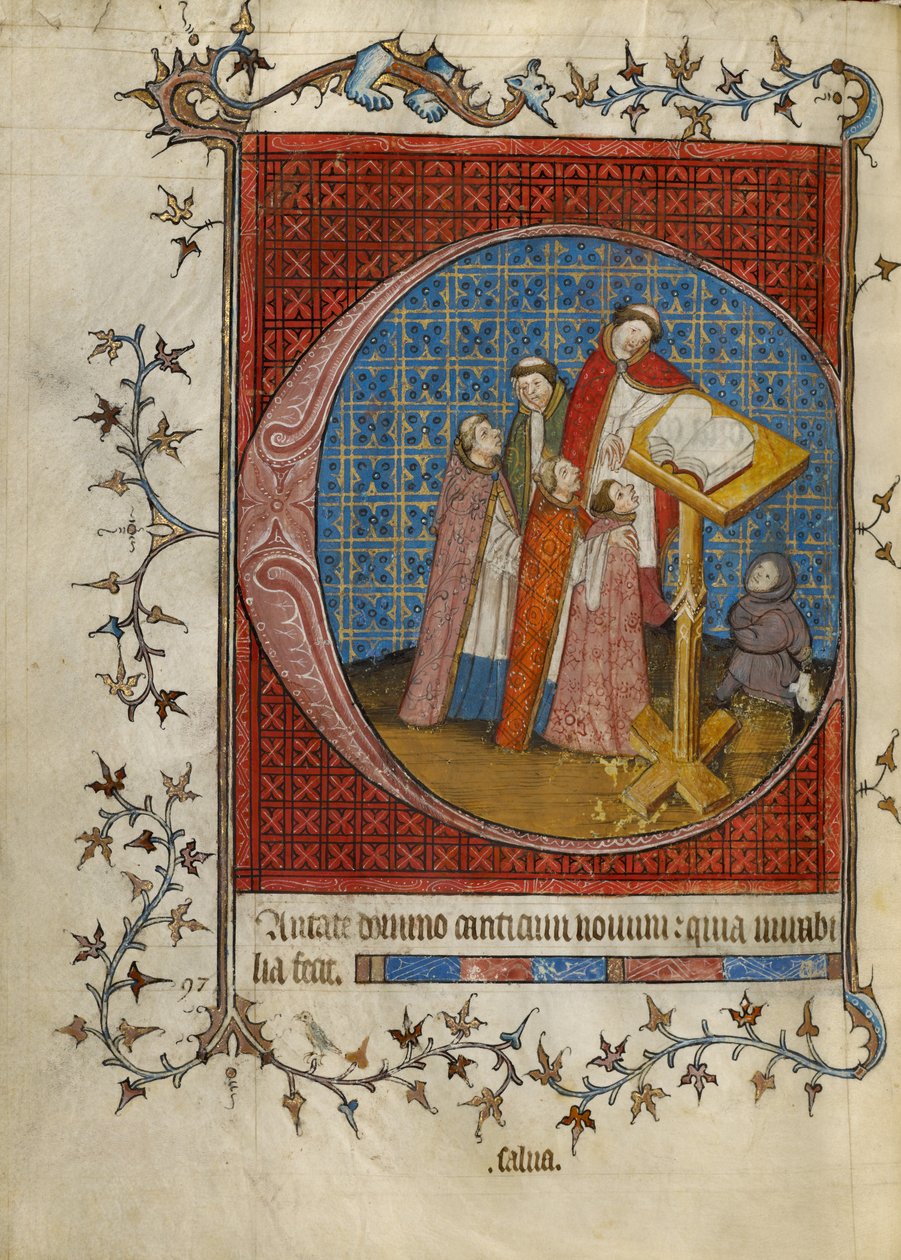 Antate domino canticum nouum : quia mirabi
lia fecit.
97
.salua.